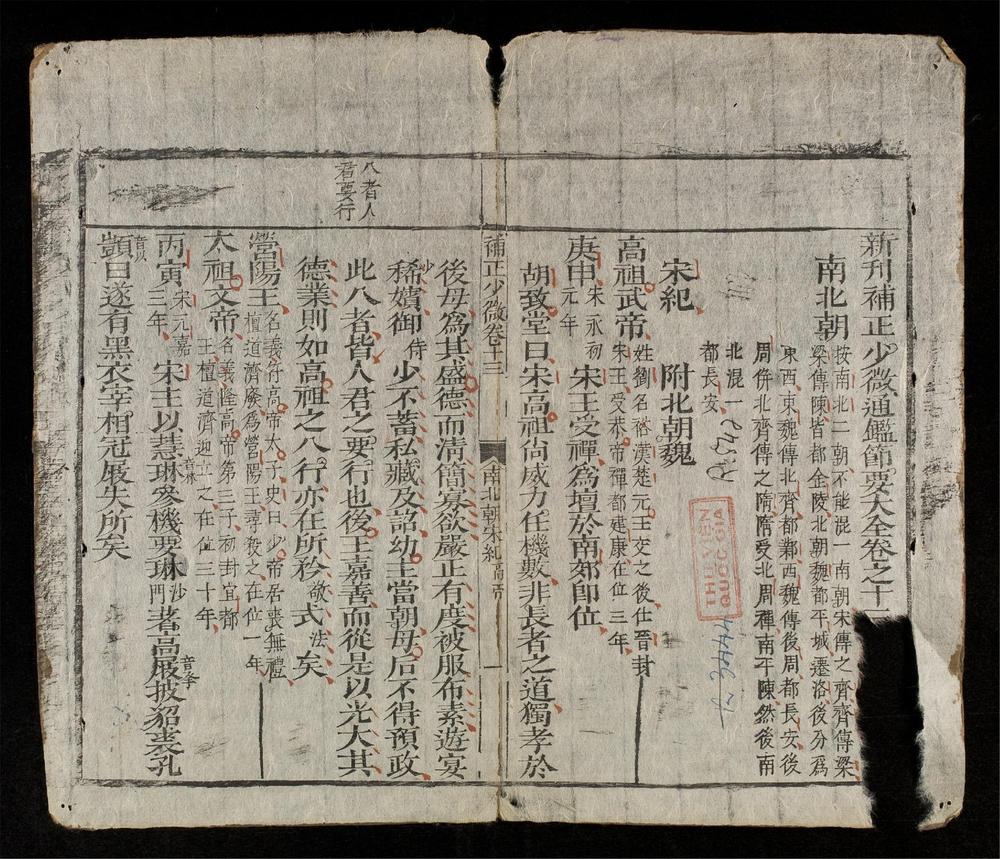 新刊補正少微通鑑節要大全卷之十
南北朝
按南北二朝不能混一南朝宋傳之齊齊傳梁
梁傳陳皆都金陵北朝魏都平城遷洛後分為
東西東魏傳北齊都鄴西魏傳後周都長安後
周併北齊傳之隋隋受北周禪南平陳然後南
北混一
都長安
宋紀 附北朝魏
高祖武帝
姓劉名裕漢楚元王交之後仕晉封
宋王受恭帝禪都建康在位三年
庚申宋永初元年 宋王受禪為壇於南郊即位
胡致堂曰宋高祖尚威力任機數非長者之道獨孝於
補正少微卷十三 南北朝宋紀高帝 一
後母為其盛德而清簡寡欲嚴正有度被服布素遊宴
稀少嬪御侍少不蓄私藏及詔幼主當朝母后不得預政
此八者皆人君之要行也後王嘉善而從是以光大其
德業則如高祖之八行亦在所矜敬式法矣
八者人
君要行
營陽王
名義符高帝太子史曰少帝居喪無禮
檀道濟廢為營陽王尋殺之在位一年
太祖文帝
名義隆高帝第三子初封宜都
王檀道濟迎立之在位三十年
丙寅宋元嘉三年 宋主以慧琳音林參機要琳沙門著高屐音奉披貂裘孔
顗音以曰遂有黑衣宰相冠屐失所矣
THƯ VIỆN
QUỐC GIA